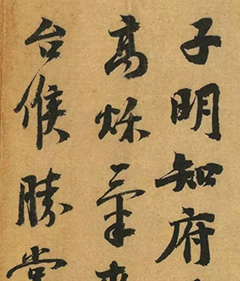 子明知府
高秌氣
台候勝常